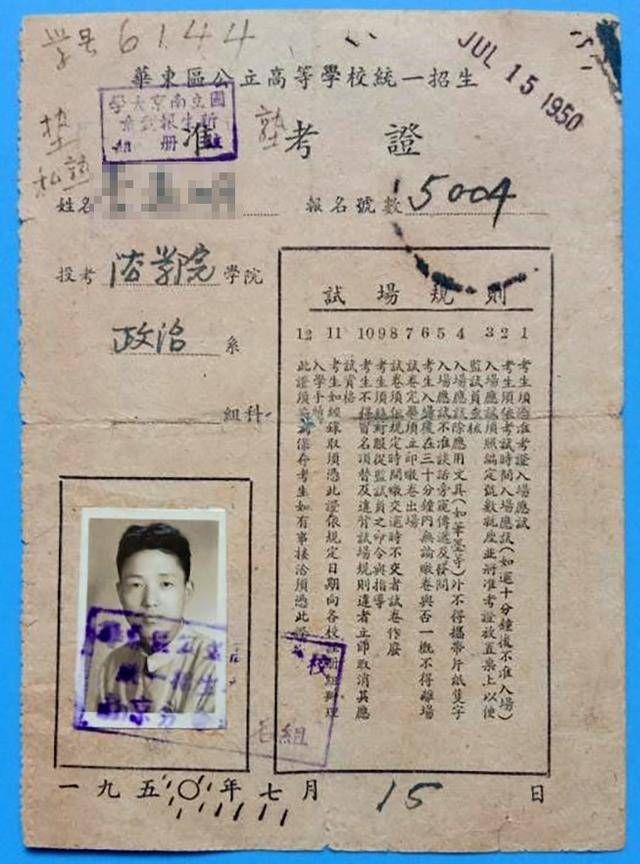 学号 6144
JUL 15 1950
華東區公立高等學校統一招生
國立南京大學
新生報到
註冊組
准考證
姓名
報名號數 5004
投考 法學院 學院
政治 系
組科
試場規則
1 考生須憑准考證入場應試
2 考生須依考試時間入場應試(如逾十分鐘後不准入場)
3 入場應試須照編定號數就座並將准考證放置桌上以便監試員查核
4 入場應試除應用文具(如筆墨等)外不得攜帶片紙隻字
5 入場應試不准談話旁窺傳遞及發問
6 考生入場後在三十分鐘內無論繳卷與否一概不得離場
7 試卷完畢須立即繳卷出場
8 試卷須依規定時間繳交逾時不交者試卷作廢
9 考生須絕對服從監試員之命令與指導
10 考生不得冒名頂替及違背試場規則違者立即取消其應試資格
11 考生如經錄取須憑此證依規定日期向各校註冊組辦理入學手續
12 此證須妥為保存考生如有事接洽須憑此證
華東區公立
統一招生
南京分
校
一九五〇年七月15日